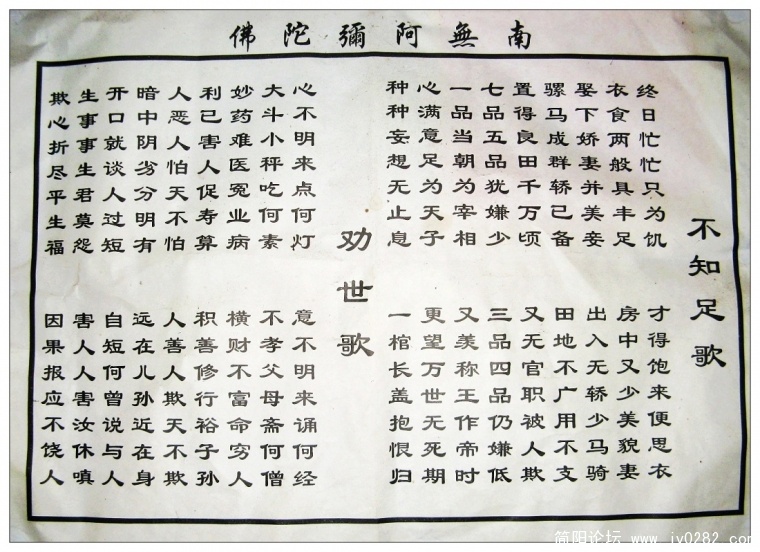 南無阿彌陀佛
不知足歌
终日忙忙只为饥
才得饱来便思衣
衣食两般具丰足
房中又少美貌妻
娶下娇妻并美妾
出入无轿少马骑
骡马成群轿已备
田地不广用不支
置得良田千万顷
又无官职被人欺
七品五品犹嫌少
三品四品仍嫌低
一品当朝为宰相
又羡称王作帝时
心满意足为天子
更望万世无死期
种种妄想无止息
一棺长盖抱恨归
劝世歌
心不明来点何灯
意不明来诵何经
大斗小秤吃何素
不孝父母斋何僧
妙药难医冤业病
横财不富命穷人
利已害人促寿算
积善修行裕子孙
人恶人怕天不怕
人善人欺天不欺
暗中阴劣分明有
远在儿孙近在身
开口就谈人过短
自短何曾说与人
生事事生君莫怨
害人人害汝休嗔
欺心折尽平生福
因果报应不饶人
简阳论坛 www.jy0282.com